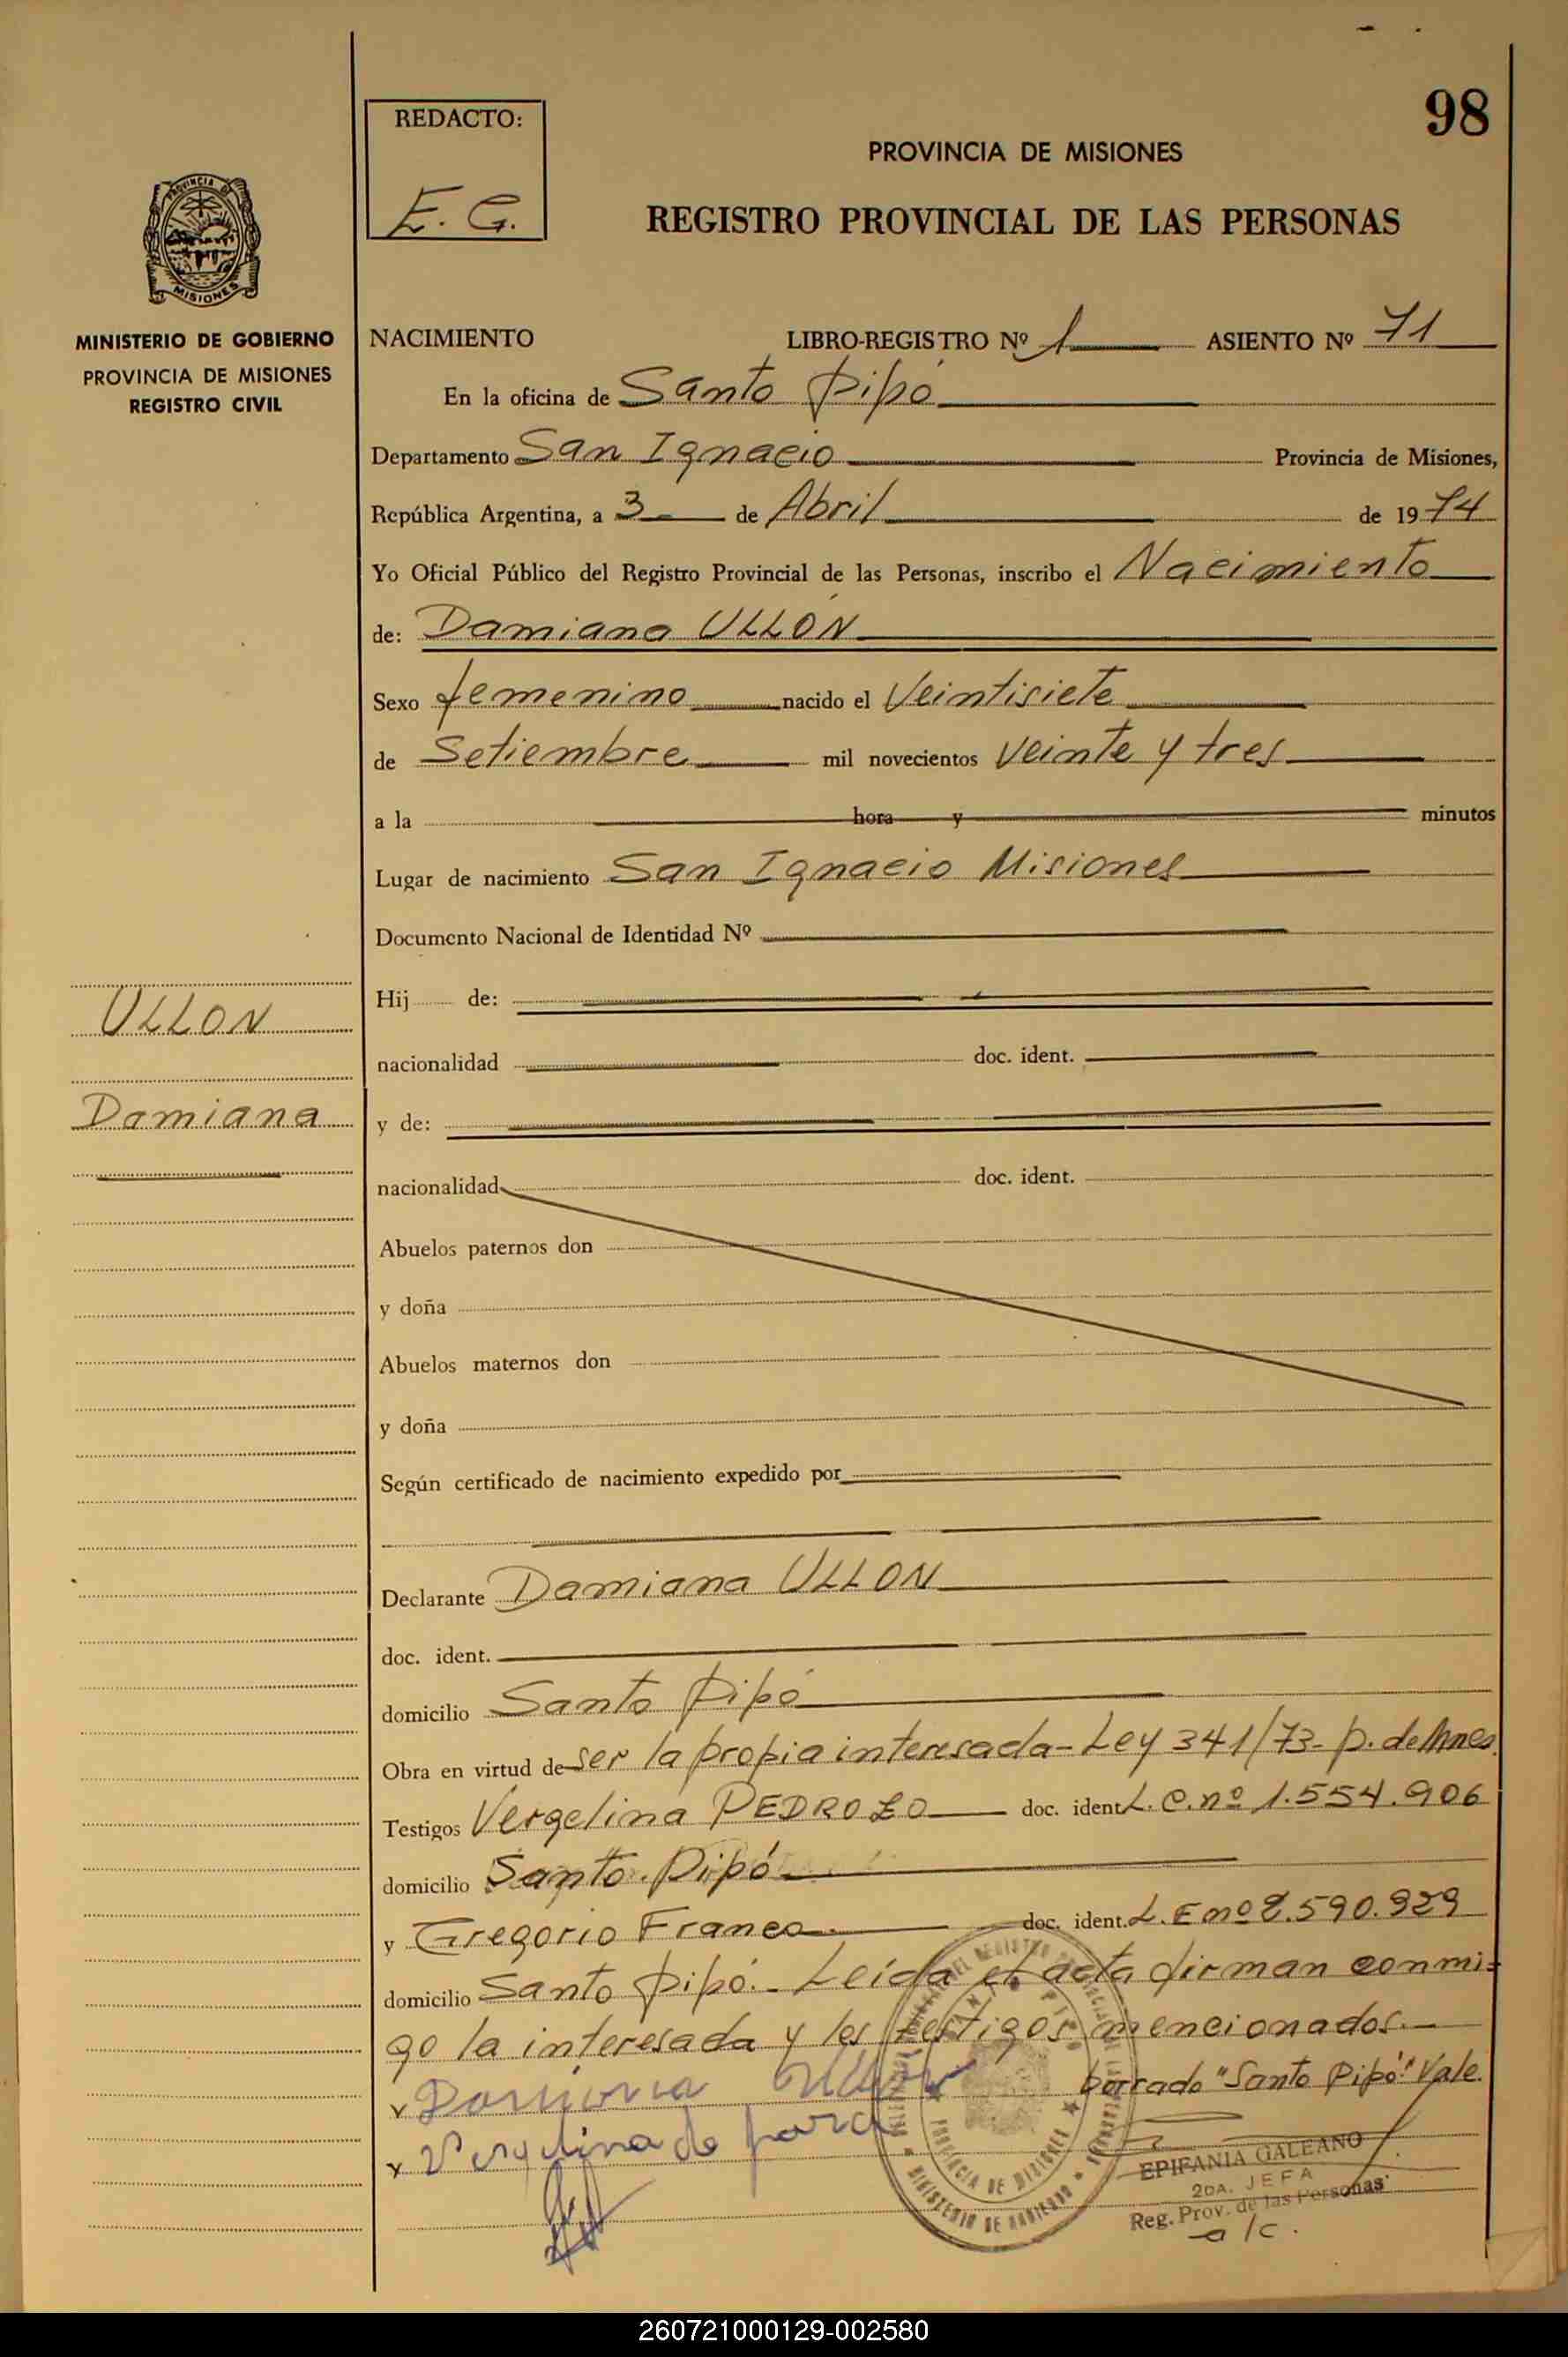 98
REDACTO:
E. G.
PROVINCIA DE MISIONES
REGISTRO PROVINCIAL DE LAS PERSONAS
PROVINCIA DE
MISIONES
MINISTERIO DE GOBIERNO
PROVINCIA DE MISIONES
REGISTRO CIVIL
NACIMIENTO LIBRO-REGISTRO Nº 1 ASIENTO Nº 71
En la oficina de Santo Pipó
Departamento San Ignacio Provincia de Misiones,
República Argentina, a 3 de Abril de 1974
Yo Oficial Público del Registro Provincial de las Personas, inscribo el Nacimiento
de: Damiana ULLÓN
Sexo femenino nacido el Veintisiete
de Setiembre mil novecientos veinte y tres
a la hora y minutos
Lugar de nacimiento San Ignacio Misiones
Documento Nacional de Identidad Nº
Hij de:
ULLON
nacionalidad doc. ident.
Damiana
y de:
nacionalidad doc. ident.
Abuelos paternos don
y doña
Abuelos maternos don
y doña
Según certificado de nacimiento expedido por
Declarante Damiana ULLON
doc. ident.
domicilio Santo Pipó
Obra en virtud de ser la propia interesada - Ley 341/73 - p. de Mnes.
Testigos Vergelina PEDROZO doc. ident. L. C. nº 1.554.906
domicilio Santo Pipó
y Gregorio Franco doc. ident. L. E nº
domicilio Santo Pipó.- Leída el acta firman conmi-
go la interesada y los testigos mencionados.-
borrado "Santo Pipó" Vale.
Damiana
Vergelina de
EPIFANIA GALEANO
2DA. JEFA
Reg. Prov. de las Personas
a/c.
SANTO PIPO
PROVINCIA DE MISIONES
MINISTERIO DE GOBIERNO
260721000129-002580